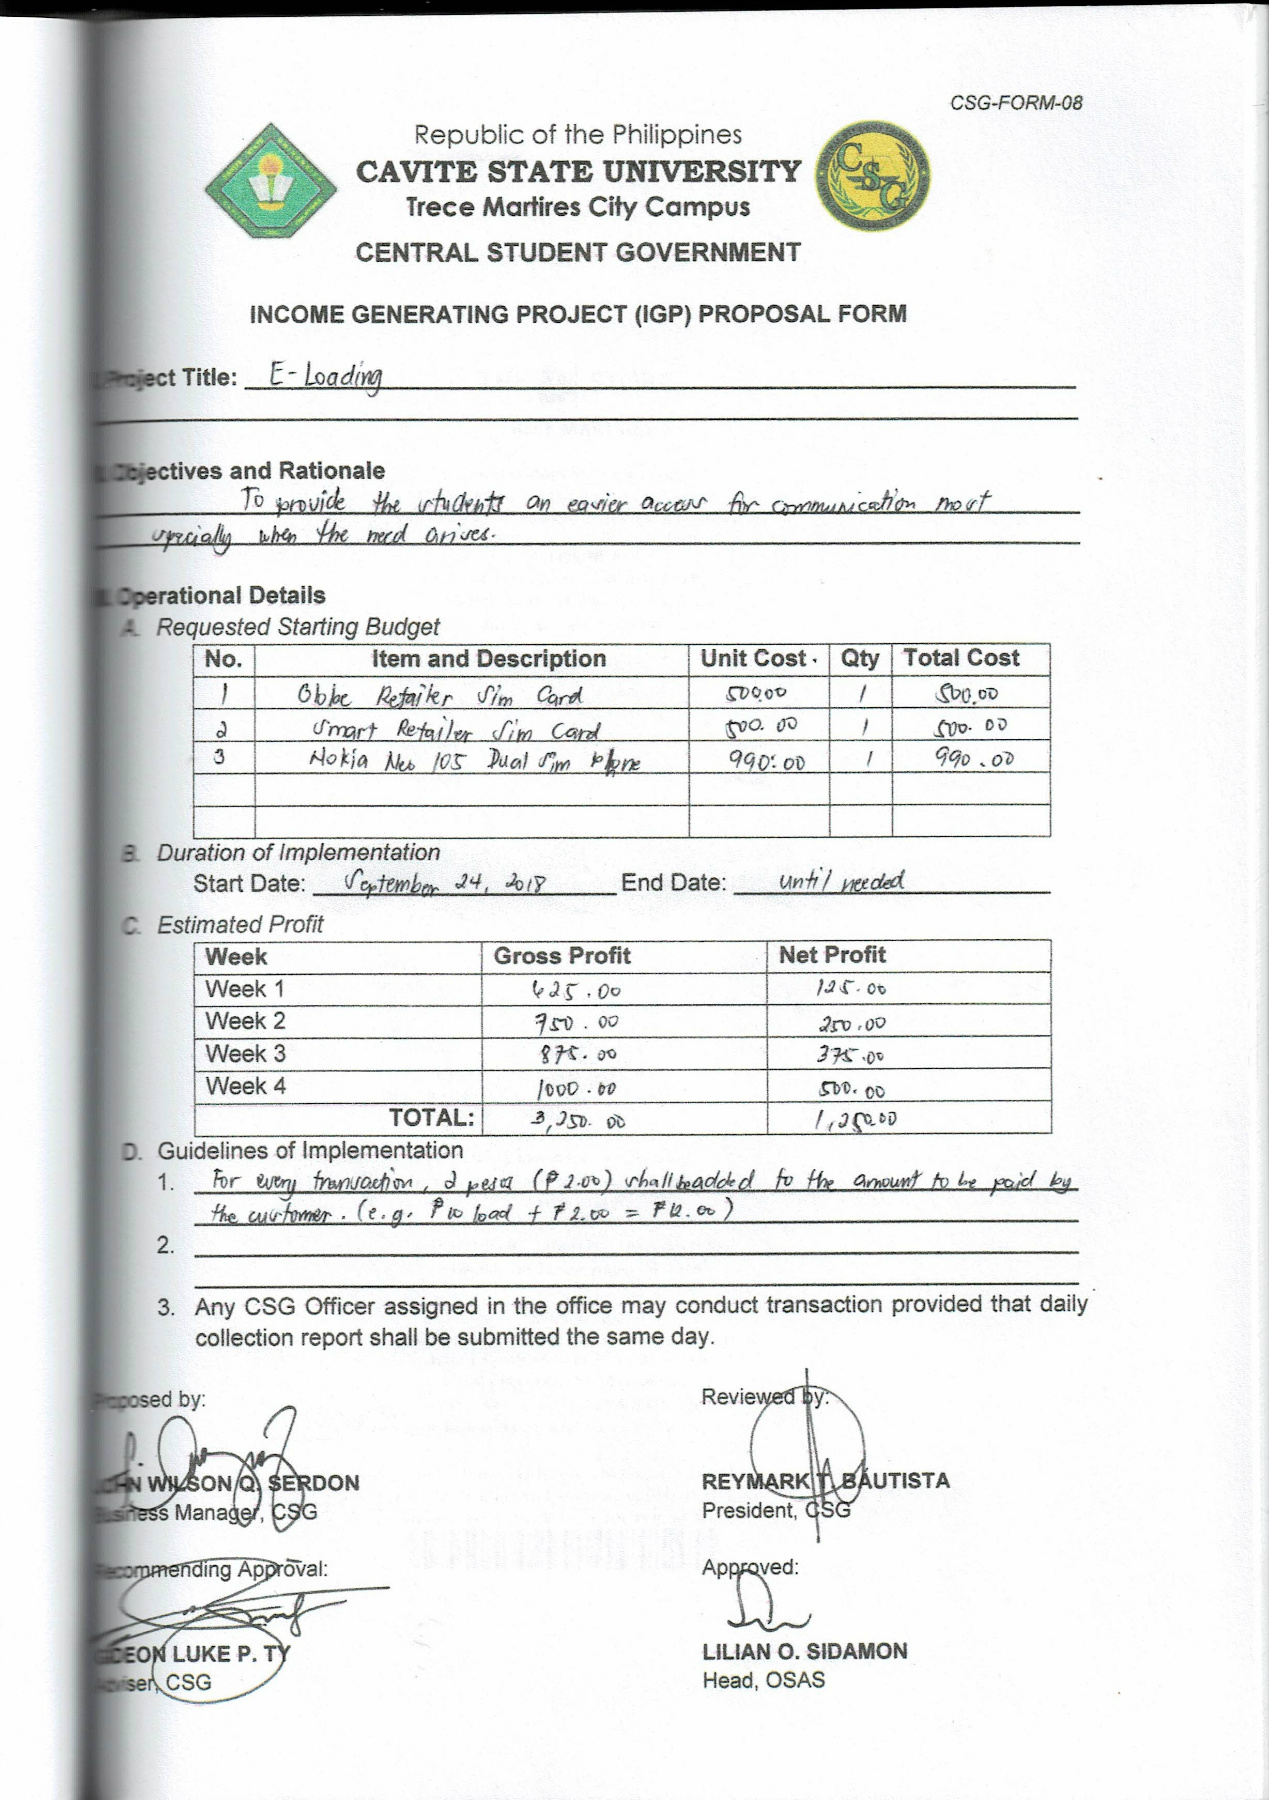 CSG-FORM-08
Republic of the Philippines
CAVITE STATE UNIVERSITY
Trece Martires City Campus
CENTRAL STUDENT GOVERNMENT
CSG
INCOME GENERATING PROJECT (IGP) PROPOSAL FORM
I. Project Title: E-Loading
II. Objectives and Rationale
To provide the students an easier access for communication most
specially when the need arises.
III. Operational Details
A. Requested Starting Budget
No. Item and Description Unit Cost Qty Total Cost
1 Globe Retailer Sim Card 500.00 1 500.00
2 Smart Retailer Sim Card 500.00 1 500.00
3 Nokia Neo 105 Dual Sim Phone 990.00 1 990.00
B. Duration of Implementation
Start Date: September 24, 2018 End Date: until needed
C. Estimated Profit
Week Gross Profit Net Profit
Week 1 625.00 125.00
Week 2 750.00 250.00
Week 3 875.00 375.00
Week 4 1000.00 500.00
TOTAL: 3,250.00 1,250.00
D. Guidelines of Implementation
1. For every transaction, 2 pesos (₱2.00) shall be added to the amount to be paid by
the customer. (e.g. ₱10 load + ₱2.00 = ₱12.00)
2.
3. Any CSG Officer assigned in the office may conduct transaction provided that daily
collection report shall be submitted the same day.
Proposed by: Reviewed by:
JOHN WILSON Q. SERDON REYMARK T. BAUTISTA
Business Manager, CSG President, CSG
Recommending Approval: Approved:
GIDEON LUKE P. TY LILIAN O. SIDAMON
Adviser, CSG Head, OSAS